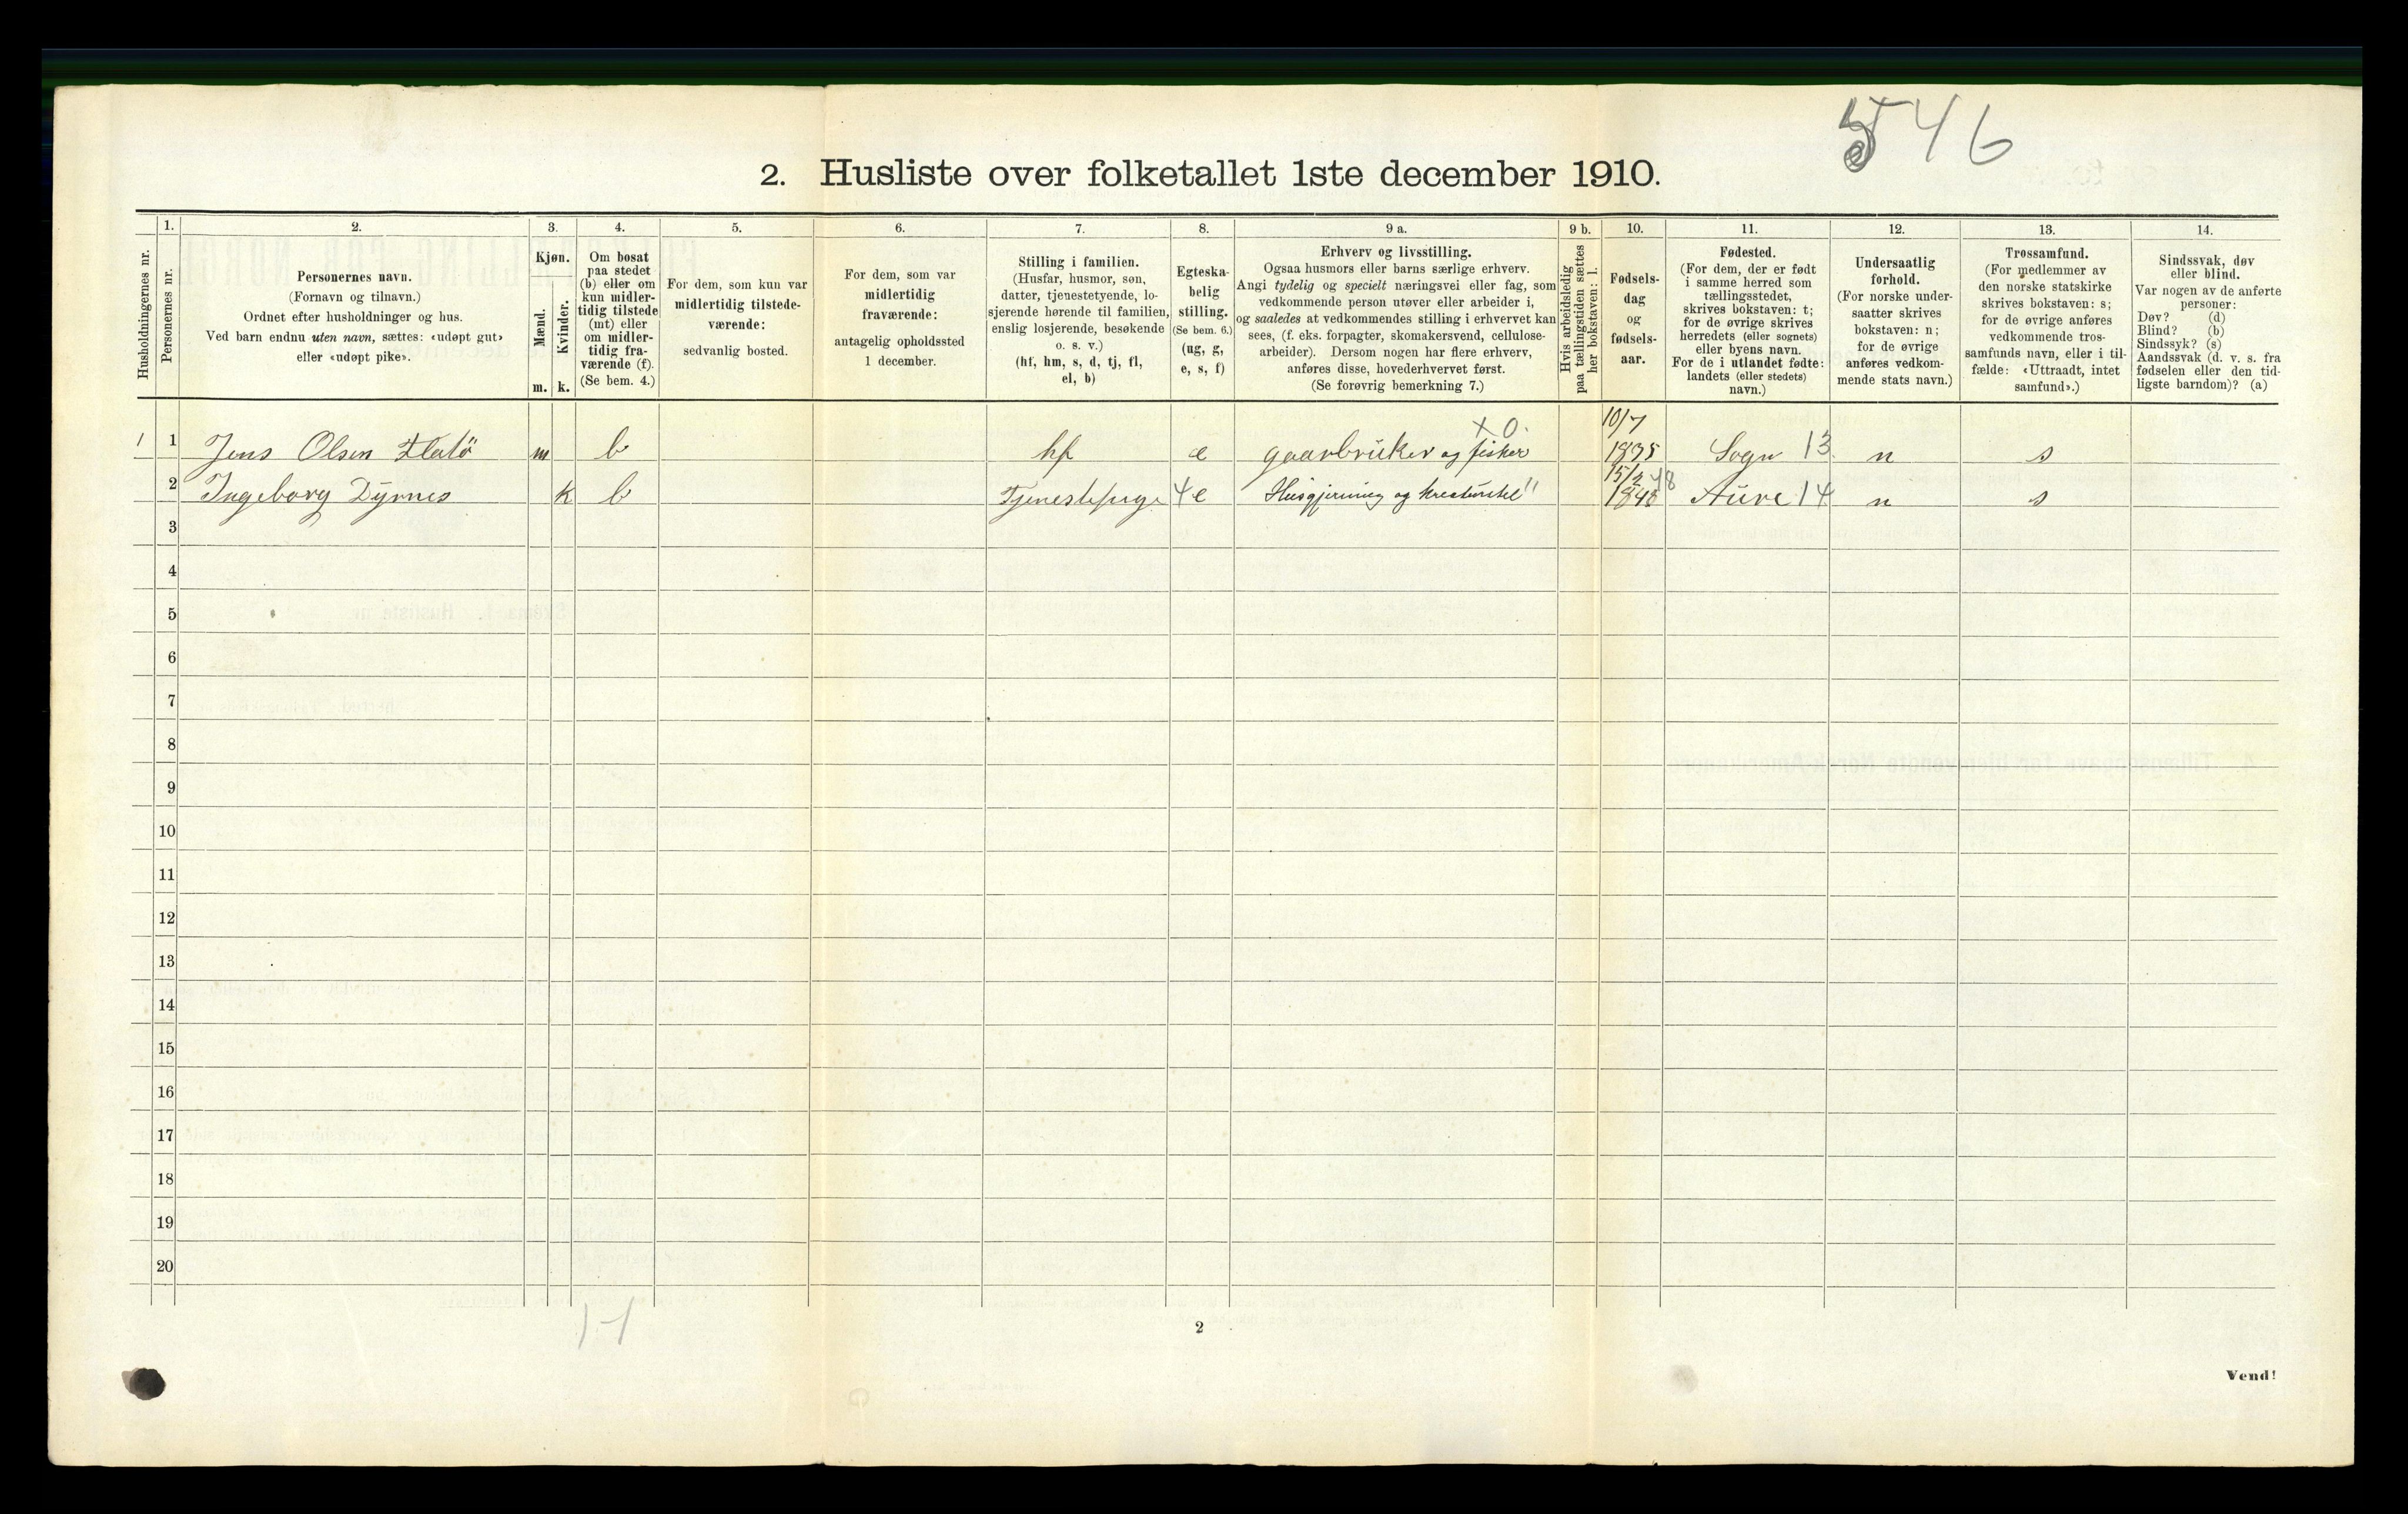 546
2. Husliste over folketallet 1ste december 1910.
Husholdningernes nr.
1.
Personernes nr.
2.
Personernes navn.
(Fornavn og tilnavn.)
Ordnet efter husholdninger og hus.
Ved barn endnu uten navn, sættes: «udøpt gut»
eller «udøpt pike».
3.
Kjøn.
Mænd.
Kvinder.
m.
k.
4.
Om bosat
paa stedet
(b) eller om
kun midler-
tidig tilstede
(mt) eller
om midler-
tidig fra-
værende (f).
(Se bem. 4.)
5.
For dem, som kun var
midlertidig tilstede-
værende:
sedvanlig bosted.
6.
For dem, som var
midlertidig
fraværende:
antagelig opholdssted
1 december.
7.
Stilling i familien.
(Husfar, husmor, søn,
datter, tjenestetyende, lo-
sjerende hørende til familien,
enslig losjerende, besøkende
o. s. v.)
(hf, hm, s, d, tj, fl,
el, b)
8.
Egteska-
belig
stilling.
(Se bem. 6.)
(ug, g,
e, s, f)
9 a.
Erhverv og livsstilling.
Ogsaa husmors eller barns særlige erhverv.
Angi tydelig og specielt næringsvei eller fag, som
vedkommende person utøver eller arbeider i,
og saaledes at vedkommendes stilling i erhvervet kan
sees, (f. eks. forpagter, skomakersvend, cellulose-
arbeider). Dersom nogen har flere erhverv,
anføres disse, hovederhvervet først.
(Se forøvrig bemerkning 7.)
9 b.
Hvis arbeidsledig
paa tællingstiden sættes
her bokstaven: l.
10.
Fødsels-
dag
og
fødsels-
aar.
11.
Fødested.
(For dem, der er født
i samme herred som
tællingsstedet,
skrives bokstaven: t;
for de øvrige skrives
herredets (eller sognets)
eller byens navn.
For de i utlandet fødte:
landets (eller stedets)
navn.)
12.
Undersaatlig
forhold.
(For norske under-
saatter skrives
bokstaven: n;
for de øvrige
anføres vedkom-
mende stats navn.)
13.
Trossamfund.
(For medlemmer av
den norske statskirke
skrives bokstaven: s;
for de øvrige anføres
vedkommende tros-
samfunds navn, eller i til-
fælde: «Uttraadt, intet
samfund».)
14.
Sindssvak, døv
eller blind.
Var nogen av de anførte
personer:
Døv? (d)
Blind? (b)
Sindssyk? (s)
Aandssvak (d. v. s. fra
fødselen eller den tid-
ligste barndom)? (a)
x 0. 10/7
1 1 Jens Olsen Flatö m b hf e gaarbrüker og fisker 1835 Sogn 13 n s
15/2 48
2 Ingeborg Dyrnes k b 4 e Husgjerning og 1848 Aüre 14 n s
3
4
5
6
7
8
9
10
11
12
13
14
15
16
17
18
19
20
1-1
2
Vend!